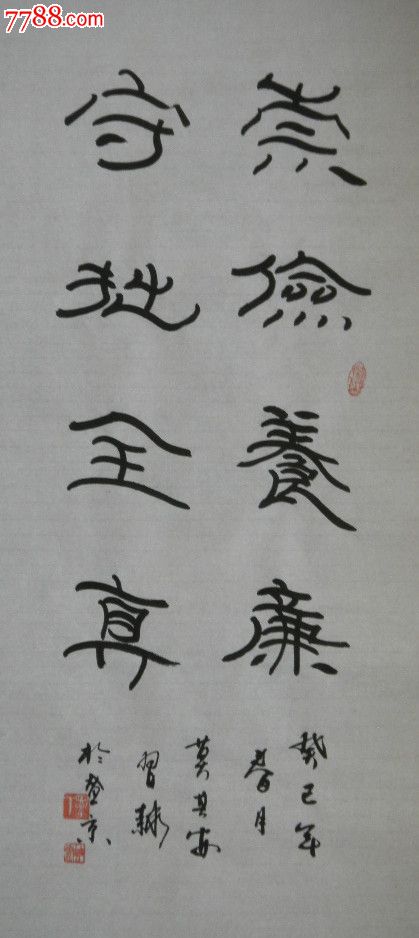 7788.com
崇儉養廉
守拙全真
癸巳年
春月
莫其
習
於京